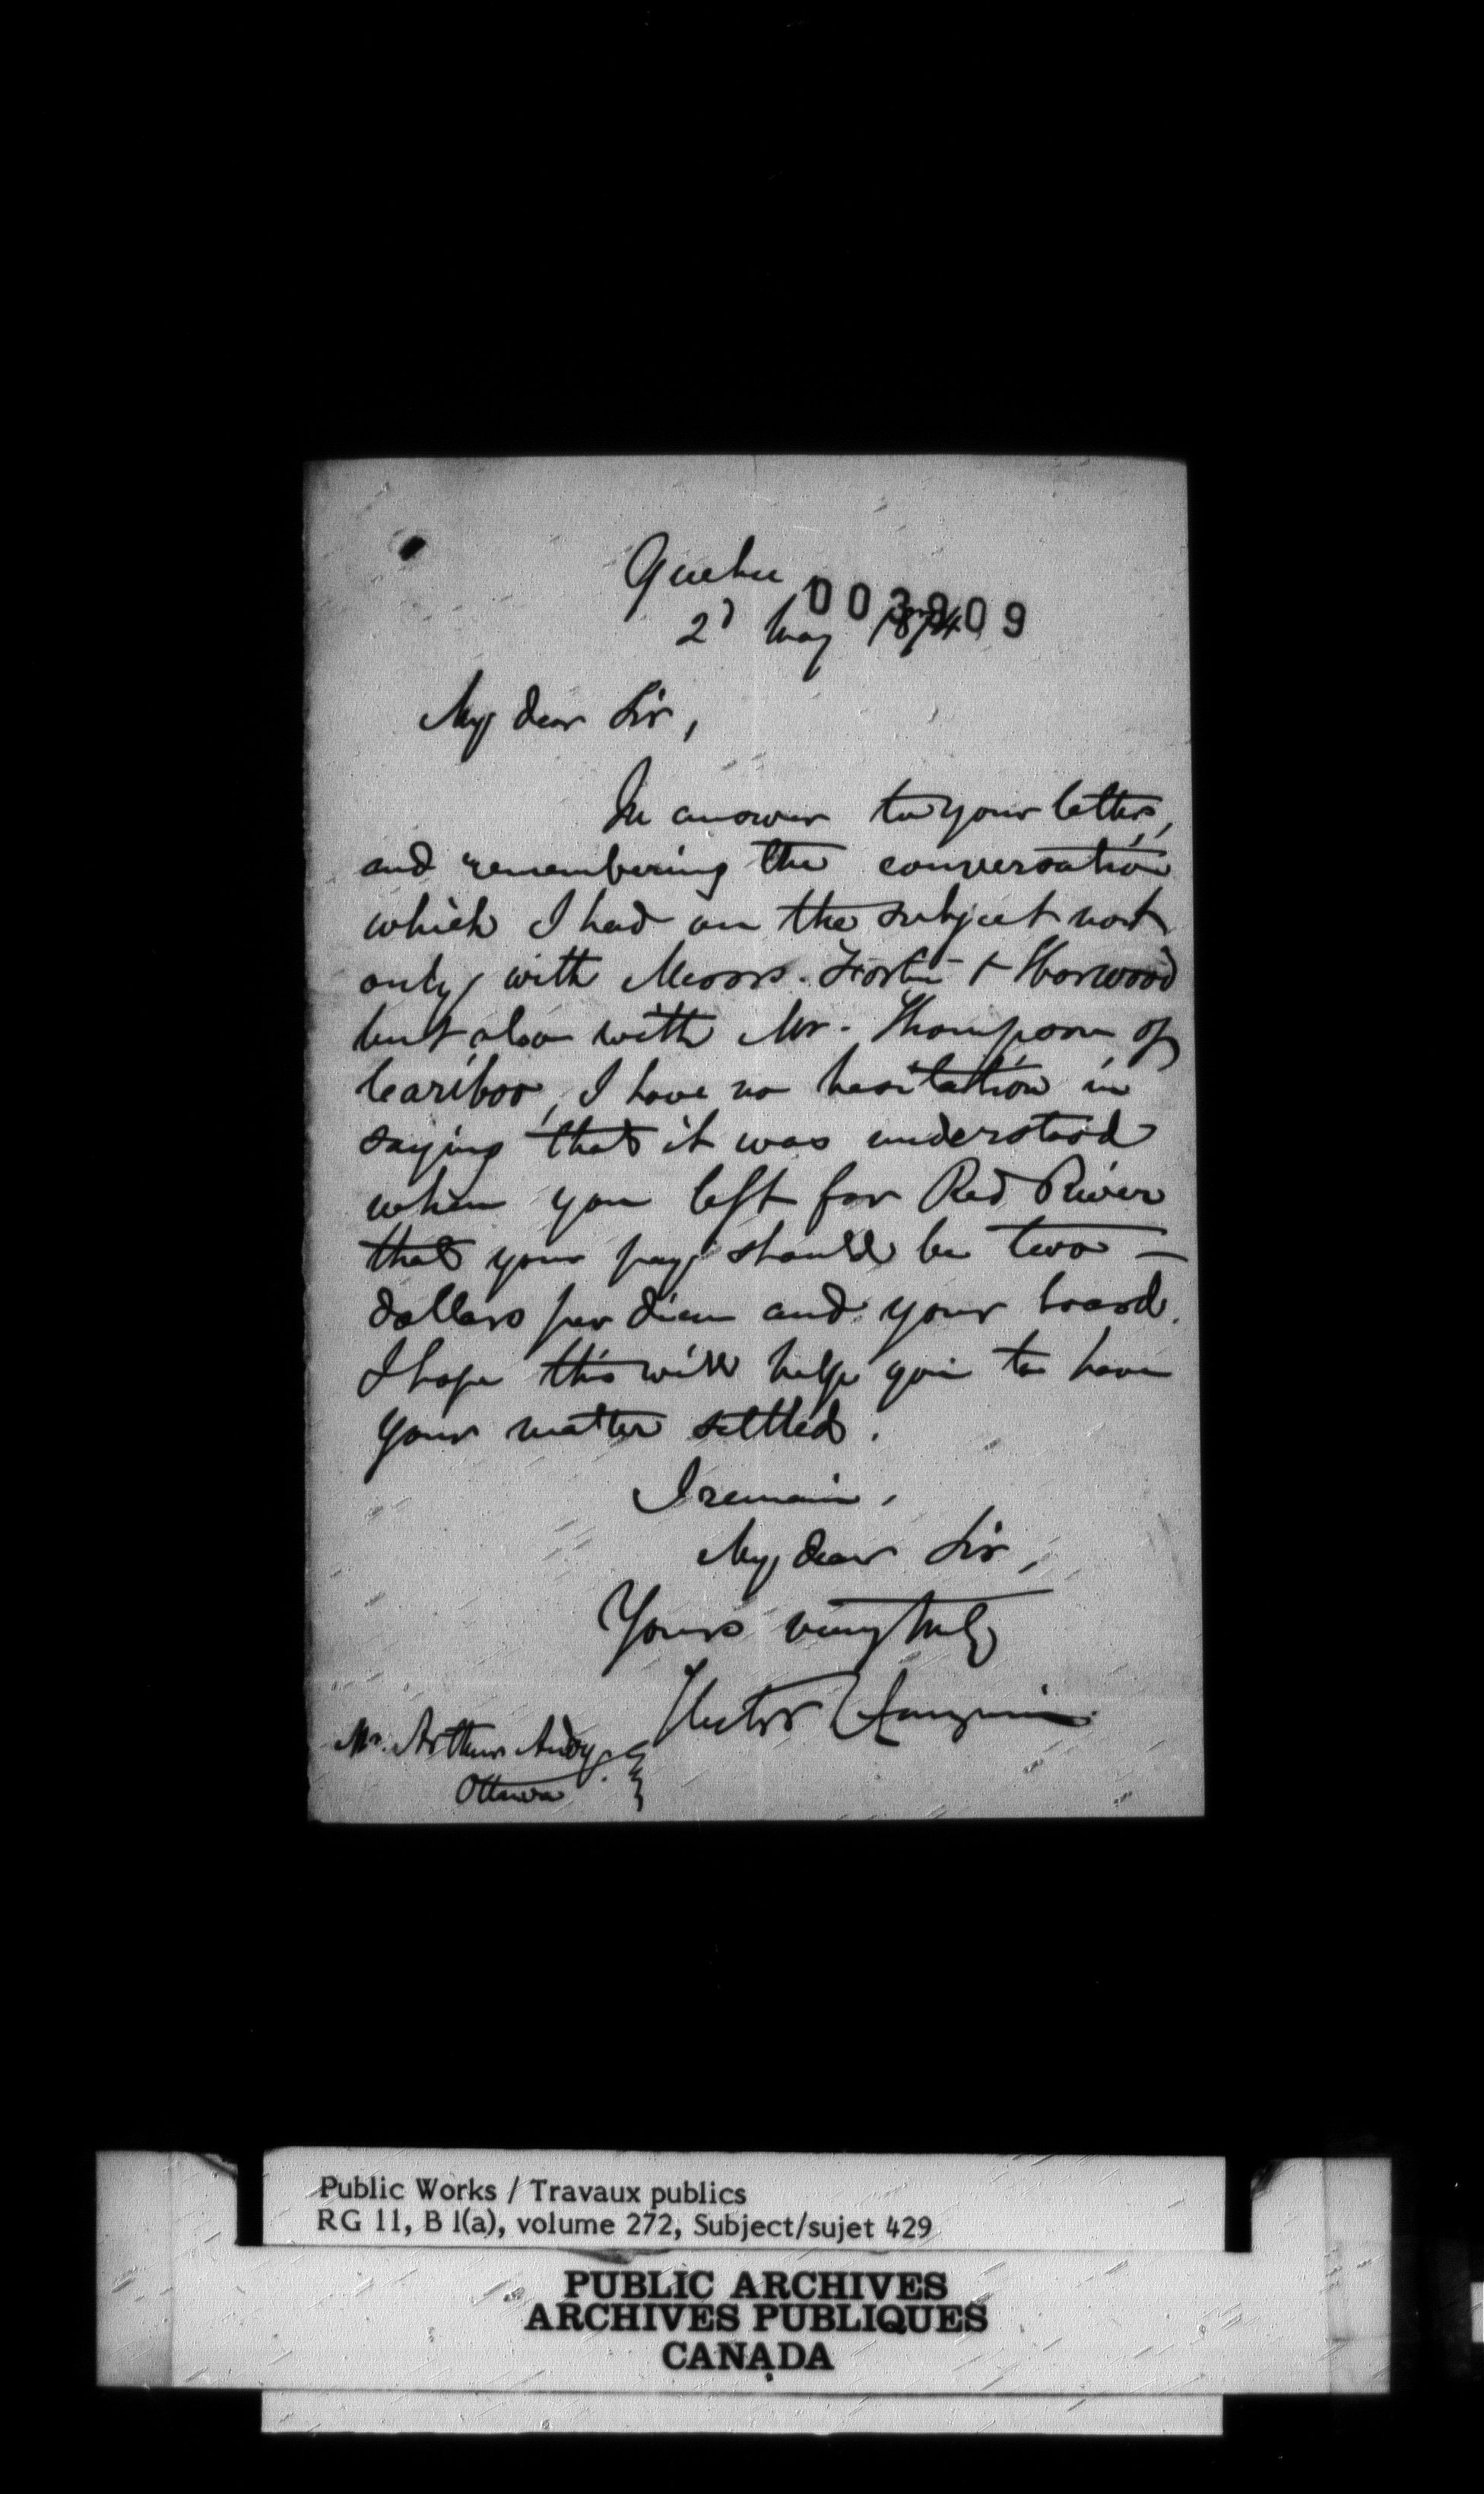 Quebec
003909
2d May 1874
My dear Sir,
In answer to your letter,
and remembering the conversation
which I had on the subject not
only with Messrs. Fortin & Harwood
but also with Mr. Thompson of
Cariboo, I have no hesitation in
saying that it was understood
when you left for Red River
that your pay should be two -
dollars per diem and your board.
I hope this will help you to have
your matter settled.
I remain,
My dear Sir,
Yours very truly
Hector Langevin
Mr. Arthur
Ottawa
Public Works / Travaux publics
RG 11, B 1(a), volume 272, Subject/sujet 429
PUBLIC ARCHIVES
ARCHIVES PUBLIQUES
CANADA